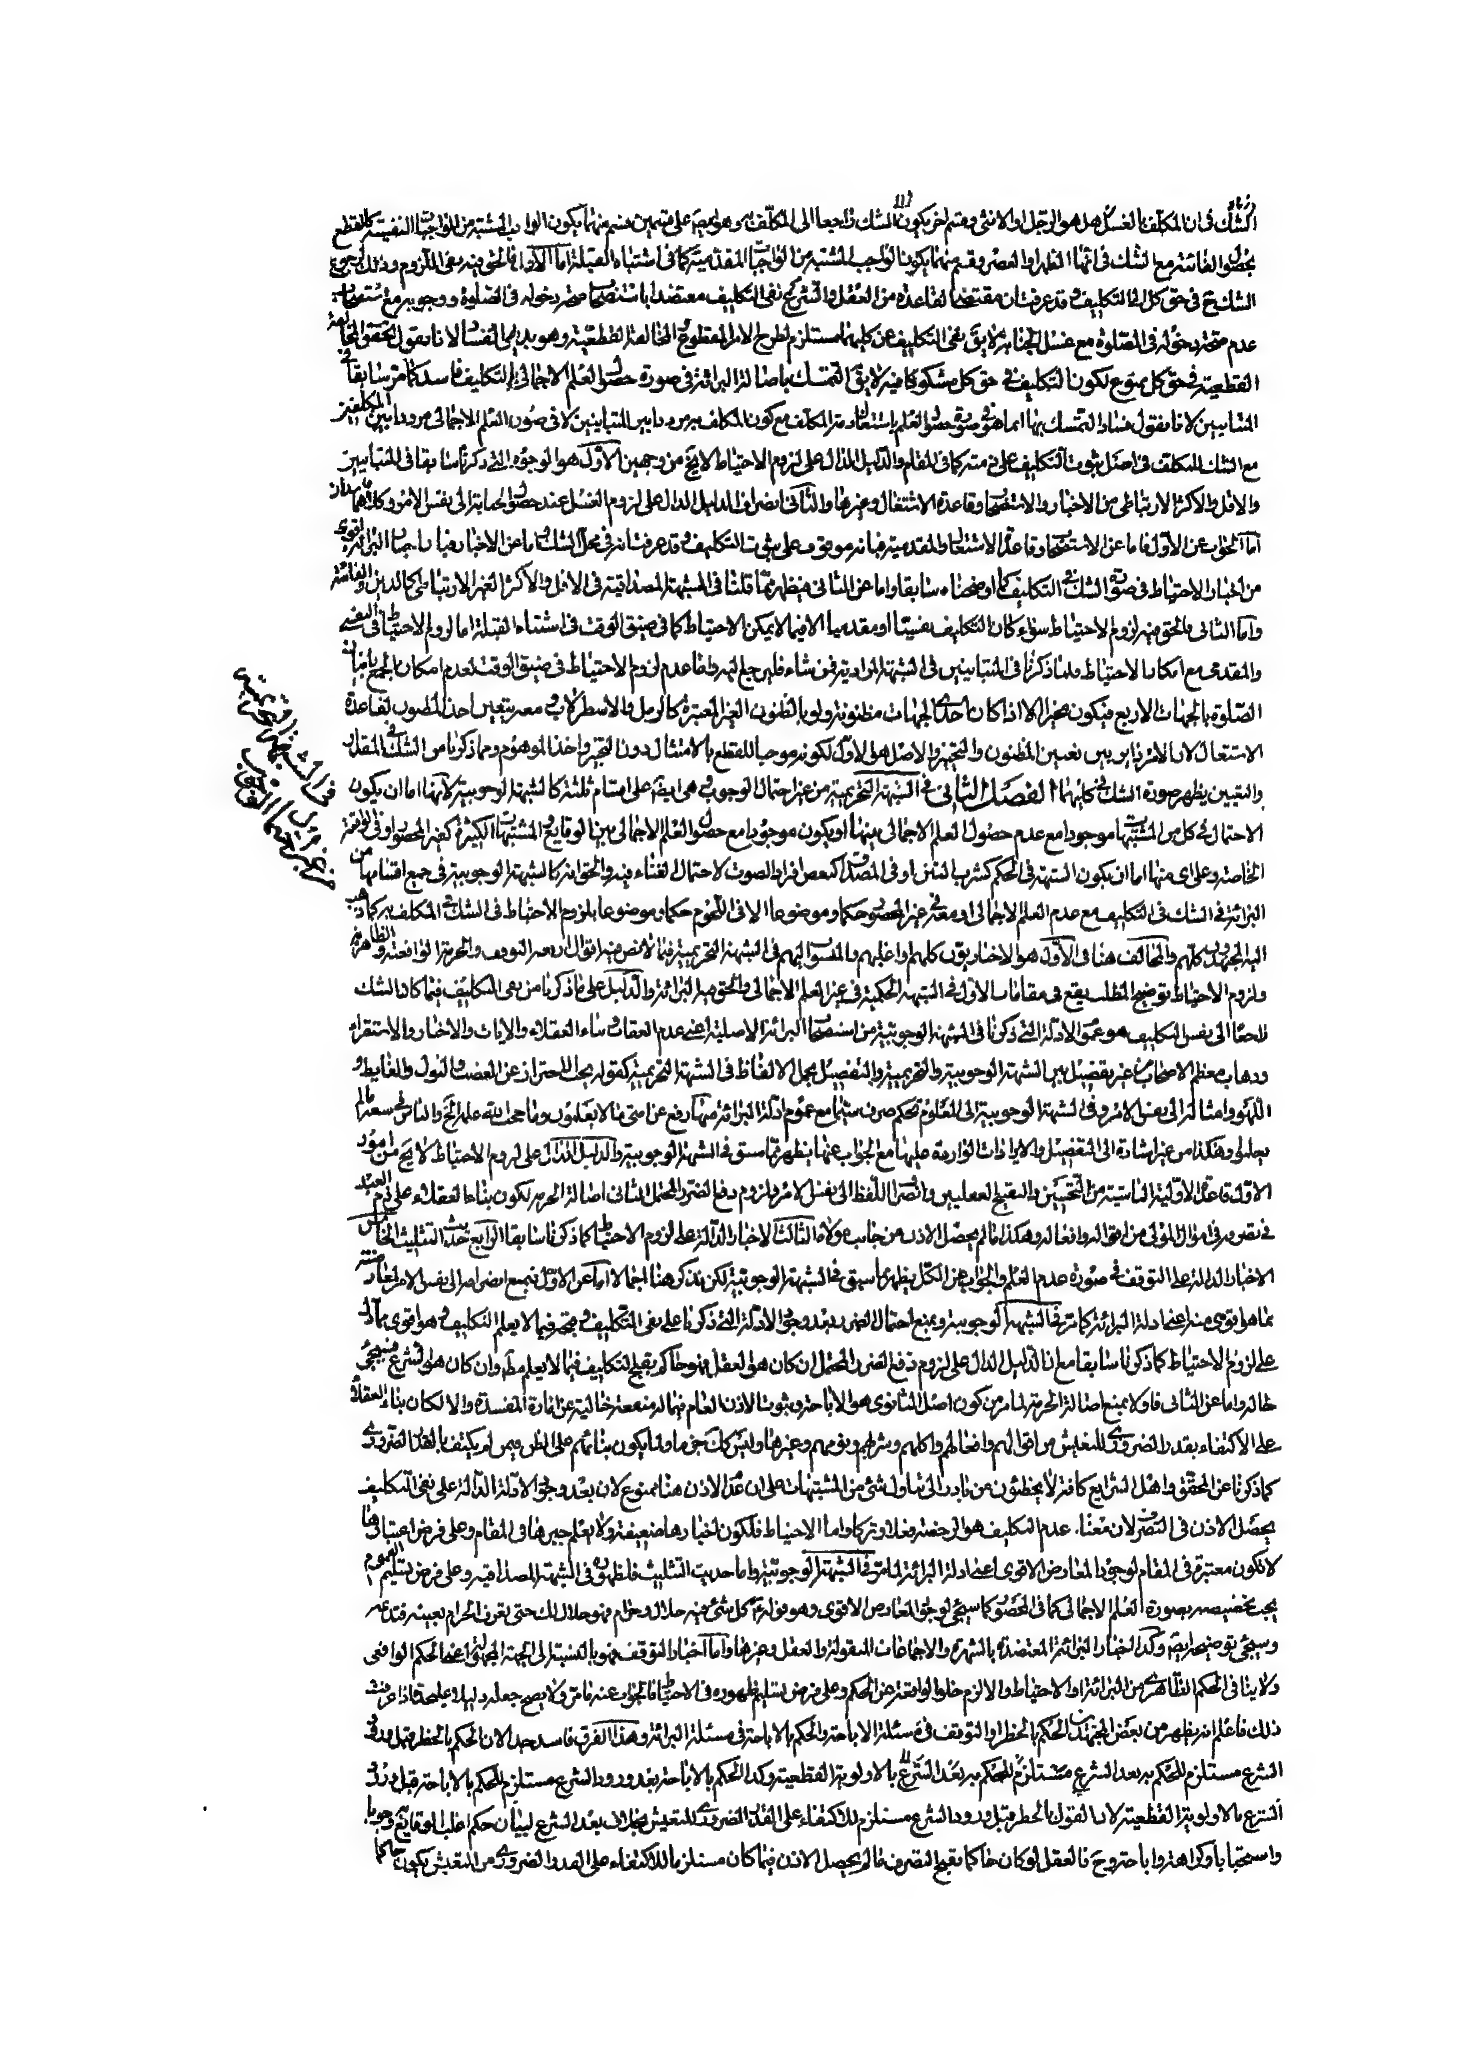 الشك فى ان المكلف بالغسل هل هو الرجل او الانثى وقسم اخر يكون الشك راجعا الى المكلف به وهو ايضا على قسمين قسم منهما يكون الواجب المشتبه من الواجبات النفسية كالقطع
بحصول الفائتة مع الشك فى انها الظهر او العصر وقسم منهما يكون الواجب المشتبه من الواجبات المقدمية كما فى اشتباه القبلة اما الاول فالحق فيه نفى اللزوم وذلك لرجوع
الشك فى حق كل الى التكليف وقد عرفت ان مقتضى القاعدة من العقل والشرع نفى التكليف معتضدا باستصحاب صحة دخوله فى الصلوة ووجوبه مع
عدم صحة دخوله فى الصلوة مع غسل الجنابة لا يق نفى التكليف عن كليهما مستلزم لطرح الامر المقطوع المخالفة القطعية وهو بديهى الفساد لانا نقول تحقق المخالفة
القطعية فى حق كل ممنوع لكون التكليف فى حق كل مشكوكا فيه لا يق التمسك باصالة البرائة فى صورة حصول العلم الاجمالى بالتكليف فاسد كما مر سابقا فى
المتباينين لانا نقول فساد التمسك بها انما هو فى صورة حصول العلم باشتغال ذمة المكلف مع كون المكلف به مرددا بين المتباينين لا فى صورة العلم الاجمالى مرددا بين المكلفين
مع الشك للمكلف فى اصل ثبوت التكليف على ذمته كما فى المقام والدليل الدال على لزوم الاحتياط لا يخ من وجهين الاول هو الوجوه التى ذكرناها سابقا فى المتباينين
والاقل والاكثر الارتباطى من الاخبار والاستصحاب وقاعدة الاشتغال وغيرها والثانى انصراف الدليل الدال على لزوم الغسل عند حصول الجنابة الى نفس الامر وكلاهما فاسدان
اما الجواب عن الاول فاما عن الاستصحاب وقاعدة الاشتغال والمقدمية فبانه موقوف على ثبوت التكليف وقد عرفت انه فى محل الشك واما عن الاخبار فبان اخبار البرائة اقوى
من اخبار الاحتياط فى صورة الشك فى التكليف كما اوضحناه سابقا واما عن الثانى فيظهر مما قلنا فى الشبهة المصداقية فى الاقل والاكثر الغير الارتباطى كالدين والفائتة
واما الثانى فالحق فيه لزوم الاحتياط سواء كان التكليف نفسيا او مقدميا الا فيما لا يمكن الاحتياط كما فى ضيق الوقت فى اشتباه القبلة اما لزوم الاحتياط فى النفسى
والمقدمى مع امكان الاحتياط فلما ذكرنا فى المتباينين فى الشبهة المرادية فمن شاء فليرجع اليه واما عدم لزوم الاحتياط فى ضيق الوقت لعدم امكان الجمع باتيان
الصلوة بالجهات الاربع فيكون مخيرا الا اذا كان احدى الجهات مظنونة ولو بالظنون الغير المعتبرة كالرمل والاسطرلاب فمعه يتعين اخذ المظنون لقاعدة
الاشتغال لان الامر داير بين تعيين المظنون والتخيير والاصل هو الاول لكونه موجبا للقطع بالامتثال دون التخيير واخذ الموهوم ومما ذكرنا من الشك فى المقدار
والتعيين يظهر صورة الشك فى كليهما الفصل الثانى فى الشبهة التحريمية من غير احتمال الوجوب وهى ايضا على اقسام ثلثة كالشبهة الوجوبية لانها اما ان يكون
الاحتمال فى كل من المشتبهات موجودا مع عدم حصول العلم الاجمالى بينهما او يكون موجودا مع حصول العلم الاجمالى بين الوقايع والمشتبهات الكثيرة كغير المحصور او فى الواقعة
الخاصة وعلى اى منها اما ان يكون الشبهة فى الحكم كشرب التتن او فى المصداق كبعض افراد الصوت لاحتمال الغناء فيه والحق انه كالشبهة الوجوبية فى جميع اقسامها من
البرائة فى الشك فى التكليف مع عدم العلم الاجمالى او معه فى غير المحصور حكما وموضوعا الا فى اللحوم حكما وموضوعا بلزوم الاحتياط فى الشك فى المكلف به كما ذهب
اليه المجتهدون كلهم والمخالف هنا فى الاول هو الاخباريون كلهم او اغلبهم والمنسوب اليهم فى الشبهة التحريمية فيما لا نص فيه اقوال اربعة التوقف والحرمة الواقعية والظاهرية
ولزوم الاحتياط توضيح المطلب يقع فى مقامات الاول فى الشبهة الحكمية فى غير العلم الاجمالى والحق فيه البرائة والدليل على ما ذكرنا من نفى التكليف فيما كان الشك
راجعا الى نفس التكليف هو عموم الادلة التى ذكرنا فى الشبهة الوجوبية من استصحاب البرائة الاصلية اعنى عدم العقاب وبناء العقلاء والايات والاخبار والاستقراء
وذهاب معظم الاصحاب من غير تفصيل بين الشبهة الوجوبية والتحريمية والتفصيل بحمل الالفاظ فى الشبهة التحريمية كقوله يجب الاحتراز عن الغصب والبول والغايط و
اللهو وامثاله الى نفس الامر وفى الشبهة الوجوبية الى المعلوم تحكم صرف سيما مع عموم ادلة البرائة منها رفع عن امتى ما لا يعلمون وما حجب الله علمه الخ والناس فى سعة ما لم
يعلموا وهكذا من غير اشارة الى التفصيل والايرادات الواردة عليها مع الجواب عنها يظهر مما سبق فى الشبهة الوجوبية والدليل الدال على لزوم الاحتياط لا يخ من امور
الاول قاعدة الاولية الناشية من التحسين والتقبيح العقليين وانصراف اللفظ الى نفس الامر ولزوم دفع الضرر المحتمل الثانى اصالة الحرمة لكون بناء العقلاء على ذم العبد
فى تصرفه فى اموال المولى من اقواله وافعاله وهكذا ما لم يحصل الاذن من جانب مولاه الثالث الاخبار الدالة على لزوم الاحتياط كما ذكرنا سابقا الرابع حديث التثليث الخامس
الاخبار الدالة على التوقف فى صورة عدم العلم والجواب عن الكل يظهر مما سبق فى الشبهة الوجوبية لكن نذكر هنا اجمالا اما عن الاول فبمنع انصرافه الى نفس الامر لمعارضته
بما هو اقوى منه اعنى ادلة البرائة كما مر فى الشبهة الوجوبية وبمنع احتمال الضرر بعد وجود الادلة التى ذكرنا على نفى التكليف وقبحه فيما لا يعلم التكليف وهو اقوى مما دل
على لزوم الاحتياط كما ذكرنا سابقا مع ان الدليل الدال على لزوم دفع الضرر المحتمل ان كان هو العقل فهو حاكم بقبح التكليف فيما لا يعلم مطلقا وان كان هو الشرع فسيجئ
حاله واما عن الثانى فاولا بمنع اصالة الحرمة لما مر من كون اصل الثانوى هو الاباحة وثبوت الاذن العام فيما له منفعة خالية عن امارة المفسدة والا لكان بناء العقلاء
على الاكتفاء بقدر الضرورى للتعيش من اقوالهم وافعالهم واكلهم وشربهم ونومهم وغيرها وليس كك
كما ذكرنا عن المحقق واهل الشرايع كافة لا يخطئون من بادر الى تناول شئ من المشتبهات على ان عدم الاذن هنا ممنوع لان بعد وجود الادلة الدالة على نفى التكليف
يحصل الاذن فى التصرف لان معنا. عدم التكليف هو الرخصة فعلا وتركا واما الاحتياط فلكون اخبارها ضعيفة ولا يعلم جبرها فى المقام وعلى فرض اعتبارها
لا تكون معتبرة فى المقام لوجود المعارض الاقوى اعنى ادلة البرائة لما مر فى الشبهة الوجوبية واما حديث التثليث فلظهوره فى الشبهة المصداقية وعلى فرض تسليم العموم
يجب تخصيصه بصورة العلم الاجمالى كما فى المحصور كما سيجئ لوجود المعارض الاقوى وهو قوله كل شئ فيه حلال وحرام فهو حلال لك حتى تعرف الحرام بعينه فتدعه
وسيجئ توضيحه ايضا وكذا اخبار البرائة المعتضدة بالشهرة والاجماعات المنقولة والعقل وغيرها واما اخبار التوقف فهو بالنسبة الى الجهة المجهول اعنى الحكم الواقعى
ولا ينافى الحكم الظاهرى من البرائة او الاحتياط والا لزم خلو الواقعة عن الحكم وعلى فرض تسليم ظهوره فى الاحتياط فالجواب عنه ما مر ولا يصح جعله دليلا عليحدة اذا عرفت
ذلك فاعلم انه يظهر من بعض المجتهدين الحكم بالحظر او التوقف فى مسئلة الاباحة والحكم بالاباحة فى مسئلة البرائة وهذا الفرق فاسد جدا لان الحكم بالحظر قبل ورود
الشرع مستلزم للحكم به بعد الشرع مستلزم للحكم به بعد الشرع بالاولوية القطعية وكذا الحكم بالاباحة بعد ورود الشرع مستلزم للحكم بالاباحة قبل ورود
الشرع بالاولوية القطعية لان القول بالحظر قبل ورود الشرع مستلزم للاكتفاء على القدر الضرورى للتعيش بخلاف بعد الشرع لبيان حكم اغلب الوقايع وجوبا
واستحبابا وكراهة واباحة وح فالعقل لو كان حاكما بقبح التصرف ما لم يحصل الاذن فيما كان مستلزما للاكتفاء على القدر الضرورى من التعيش يكون حاكما
فى الشبهة التحريمية
من غير احتمال الوجوب